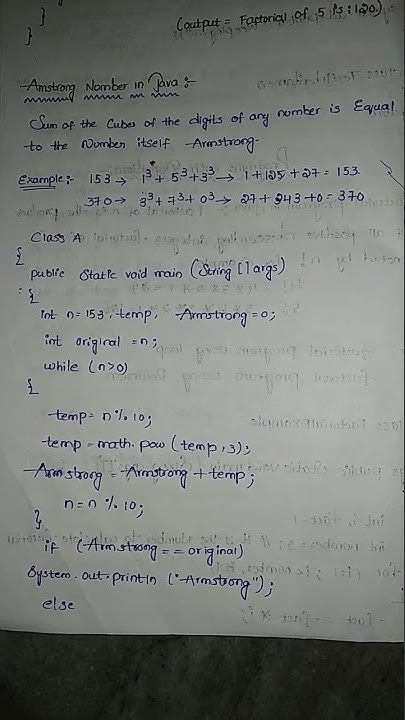 }
(output = Factorial of 5 is : 120)
}
Amstrong Number in Java :-
Sum of the Cubes of the digits of any number is Equal
to the Number itself Armstrong
Example :- 153 → 1³ + 5³ + 3³ → 1 + 125 + 27 = 153
370 → 3³ + 7³ + 0³ → 27 + 343 + 0 = 370
Class A
{
public static void main (String [] args)
{
int n = 153, temp, Armstrong = 0;
int original = n;
while (n>0)
{
temp = n % 10;
temp = math. pow (temp, 3);
Armstrong = Armstrong + temp;
n = n % 10;
}
if (Armstrong == original)
System.out.println ("Armstrong");
else